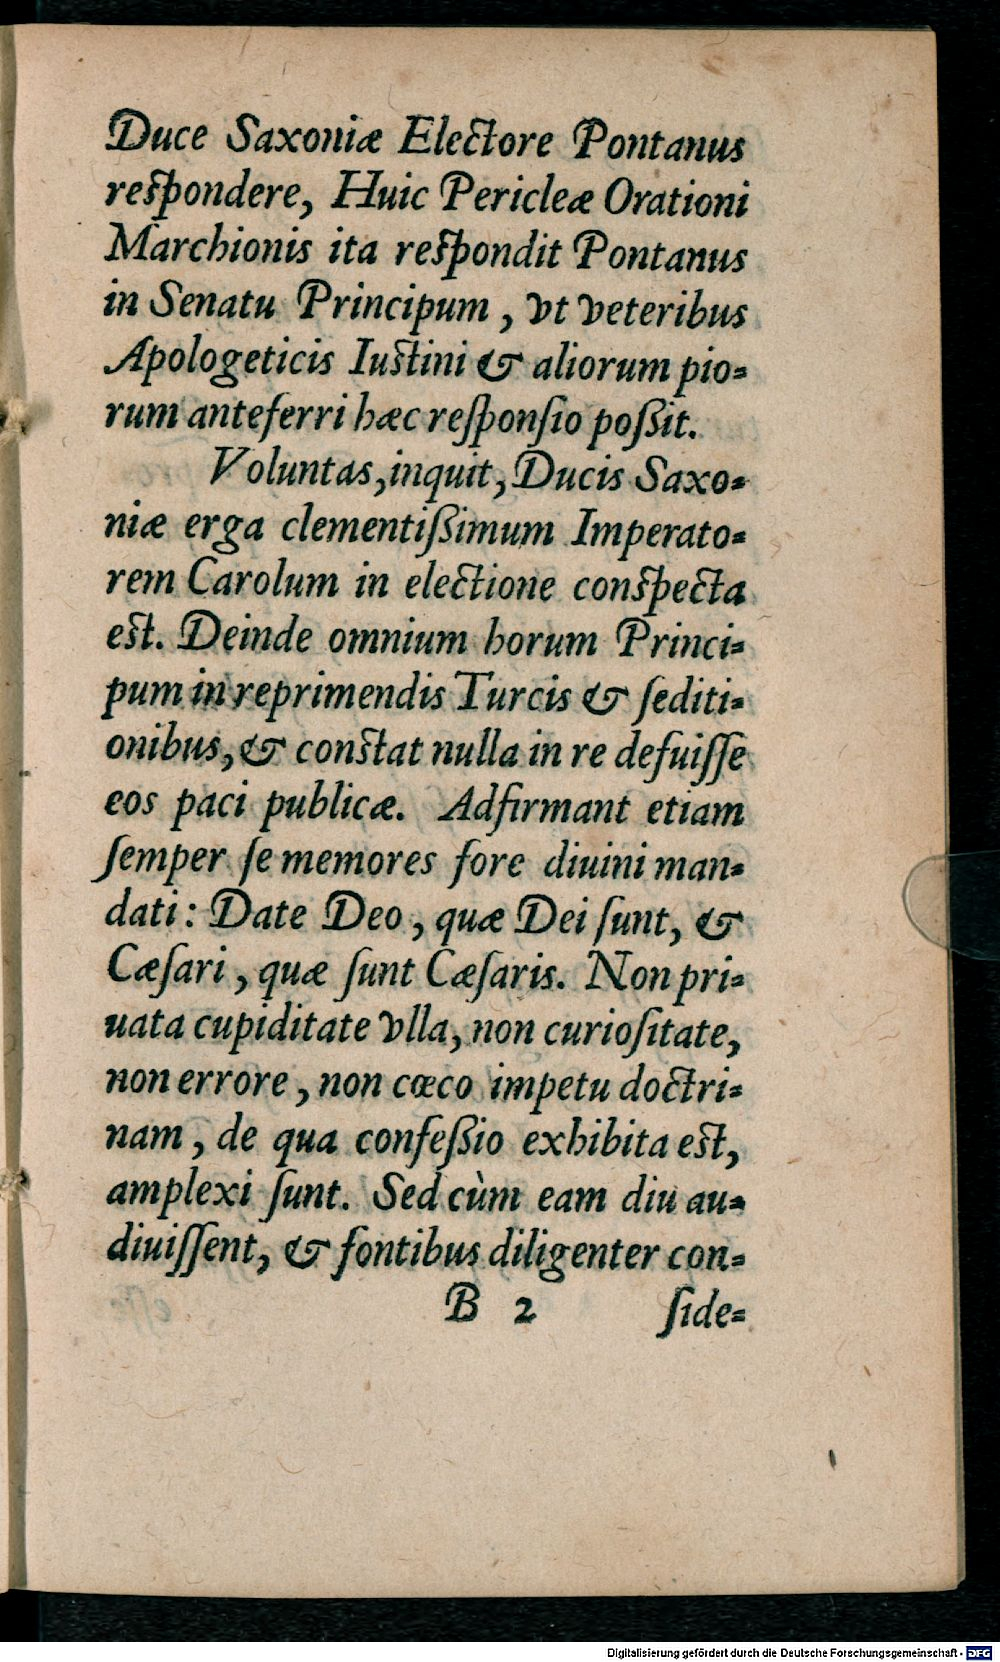 Duce Saxoniæ Electore Pontanus
respondere, Huic Pericleæ Orationi
Marchionis ita respondit Pontanus
in Senatu Principum, vt veteribus
Apologeticis Iustini & aliorum pio-
rum anteferri hæc reſponſio poßit.
Voluntas, inquit, Ducis Saxo-
niæ erga clementißimum Imperato-
rem Carolum in electione conspecta
est. Deinde omnium horum Princi-
pum in reprimendis Turcis & ſediti-
onibus, & constat nulla in re defuiſſe
eos paci publicæ. Adfirmant etiam
ſemper ſe memores fore diuini man-
dati: Date Deo, quæ Dei ſunt, &
Cæſari, quæ ſunt Cæſaris. Non pri-
uata cupiditate vlla, non curioſitate,
non errore, non cœco impetu doctri-
nam, de qua confeßio exhibita est,
amplexi ſunt. Sed cùm eam diu au-
diuiſſent, & fontibus diligenter con-
B 2 ſide-
Digitalisierung gefördert durch die Deutsche Forschungsgemeinschaft - DFG